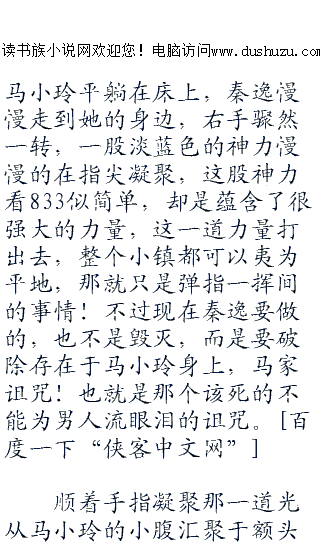 读书族小说网欢迎您！电脑访问www.dushuzu.com
马小玲平躺在床上，秦逸慢
慢走到她的身边，右手骤然
一转，一股淡蓝色的神力慢
慢的在指尖凝聚，这股神力
看833似简单，却是蕴含了很
强大的力量，这一道力量打
出去，整个小镇都可以夷为
平地，那就只是弹指一挥间
的事情！不过现在秦逸要做
的，也不是毁灭，而是要破
除存在于马小玲身上，马家
诅咒！也就是那个该死的不
能为男人流眼泪的诅咒。[百
度一下“侠客中文网”]
顺着手指凝聚那一道光
从马小玲的小腹汇聚于额头